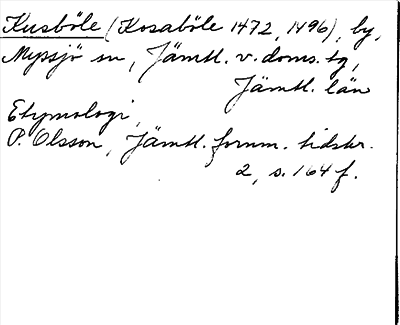 Kusböle (Kosaböle 1472, 1496), by,
Myssjö sn, Jämtl. v. doms. tg,
Jämtl. län
Etymologi,
P. Olsson, Jämtl. fornm. tidskr.
2, s. 164 f.